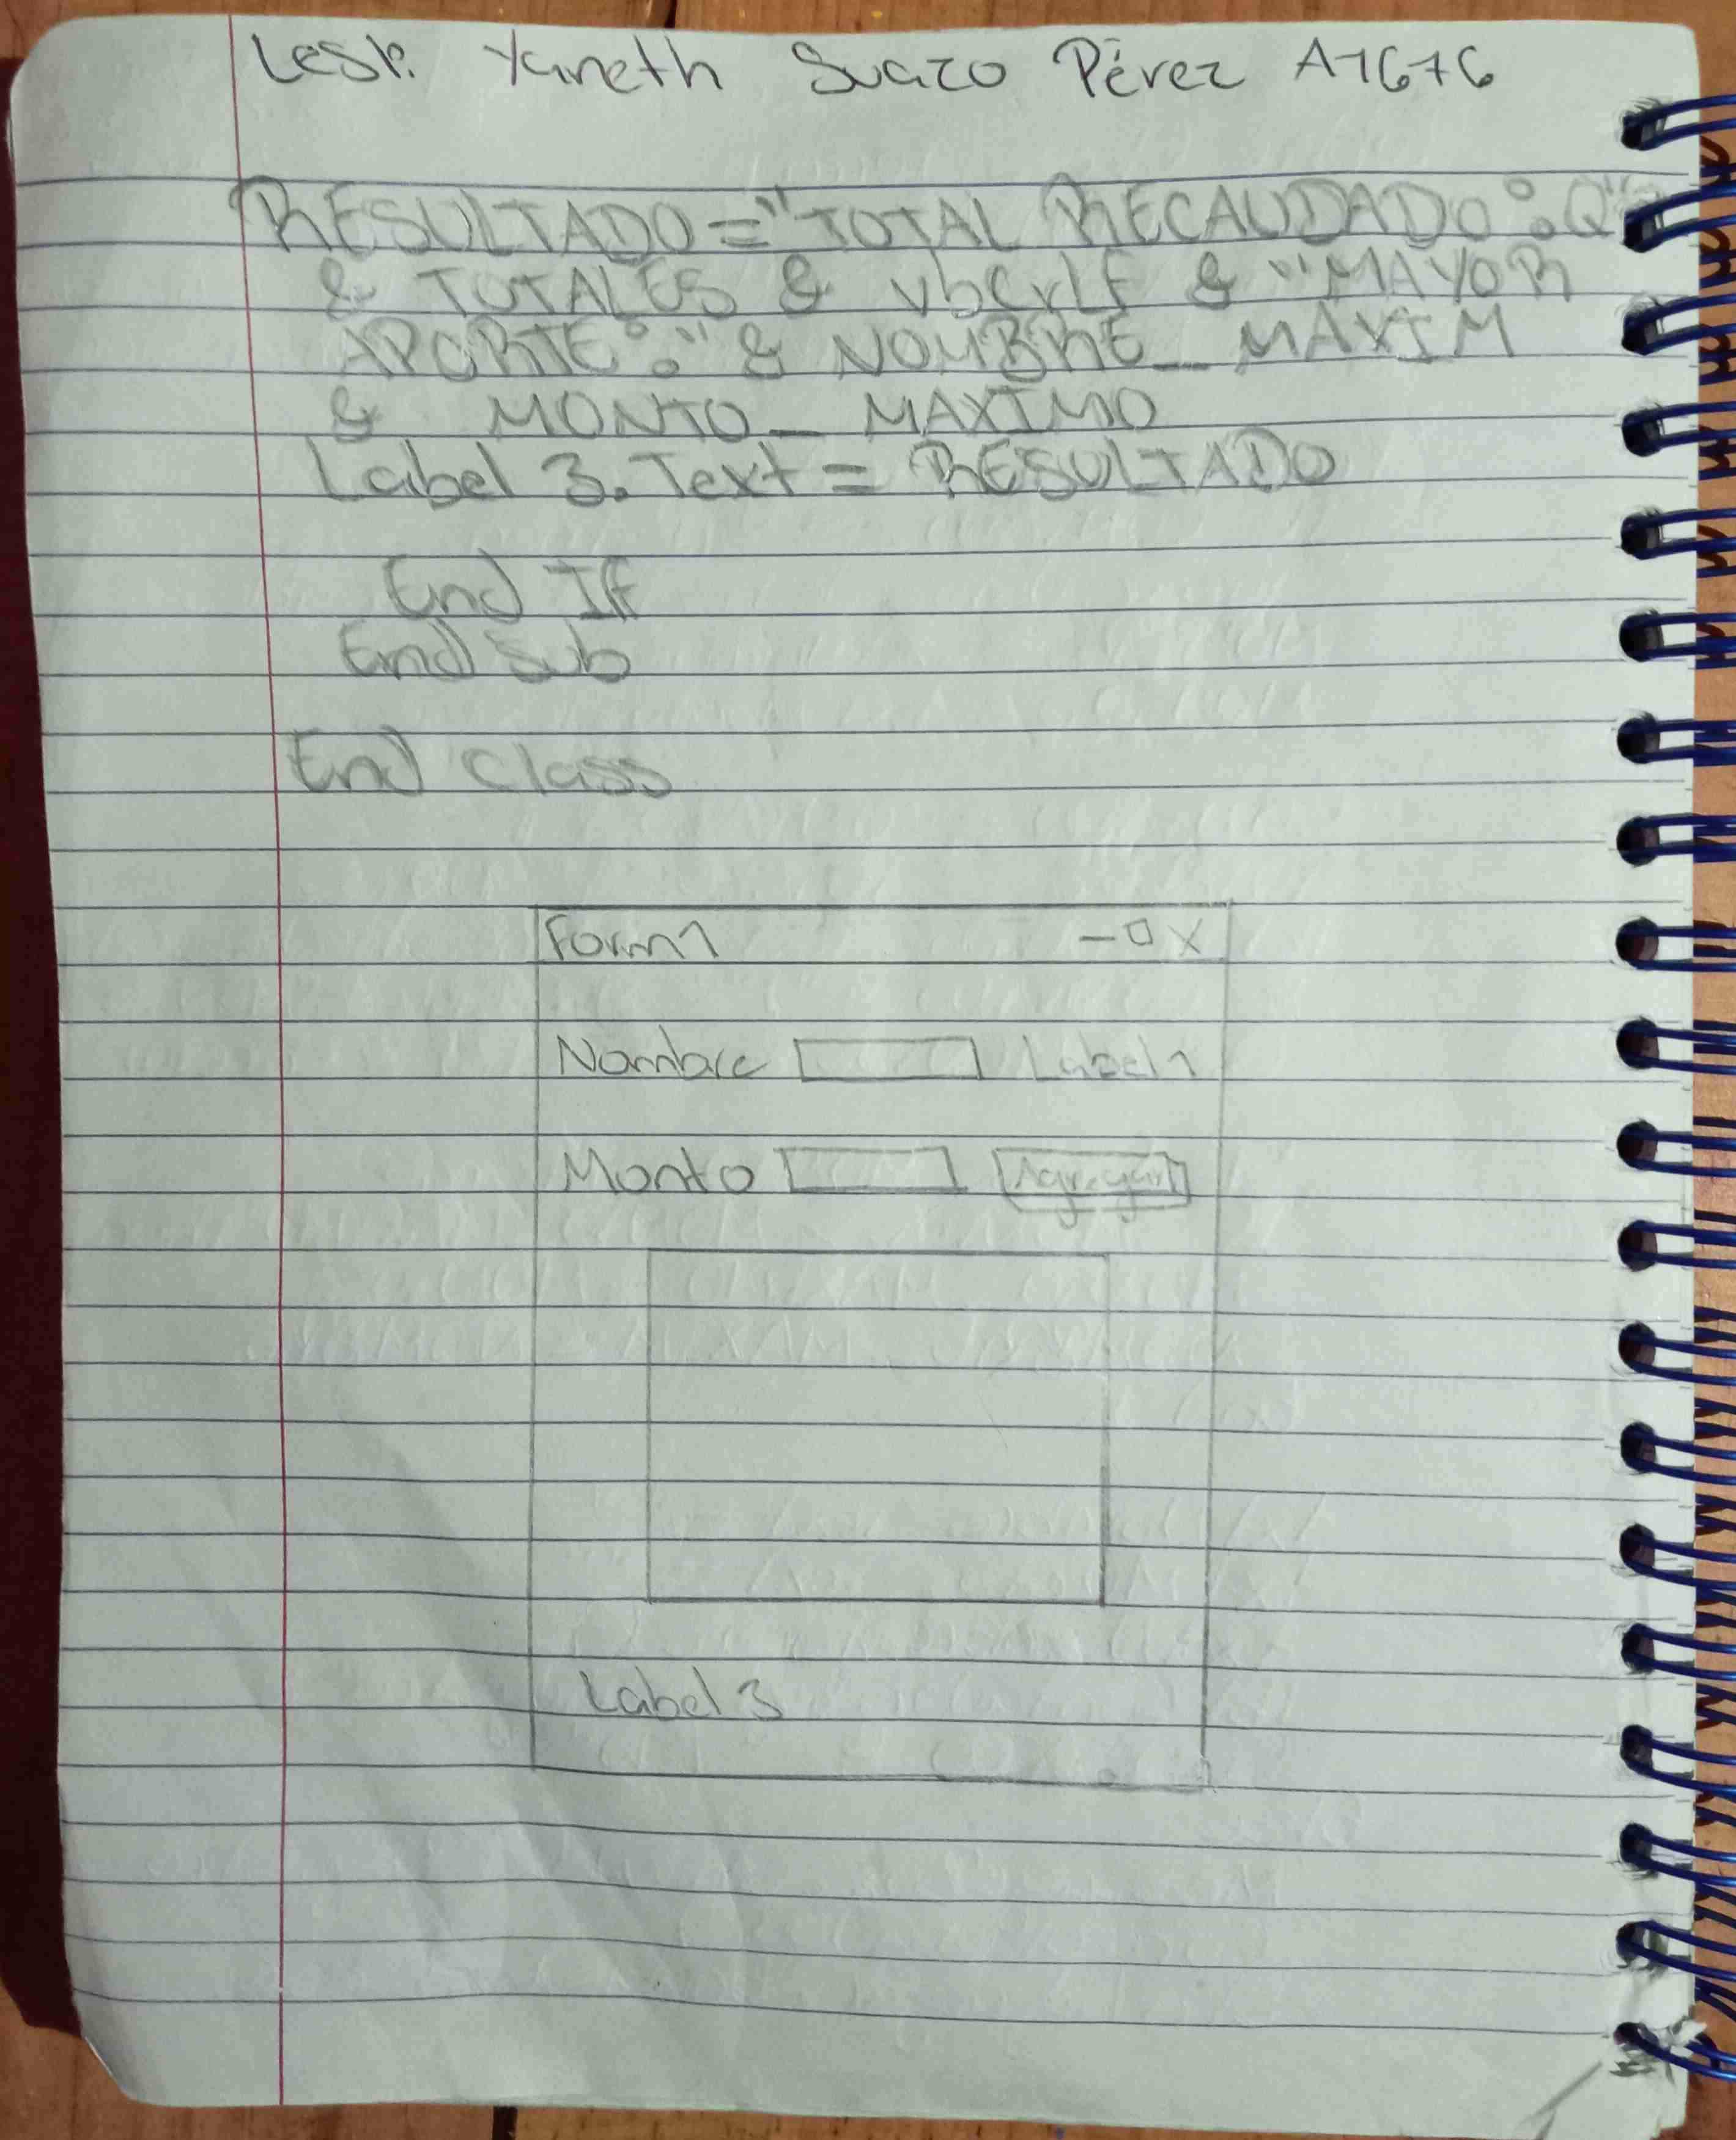 Lesli Yaneth Suazo Pérez A7676
RESULTADO="TOTAL RECAUDADO:Q"
& TOTALES & vbCrLf & "MAYOR
APORTE:" & NOMBRE_MAXIM
& MONTO_MAXIMO
Label 3.Text = RESULTADO
End If
End Sub
End Class
Form1 - □ X
Nombre Label1
Monto Agregar
Label 3